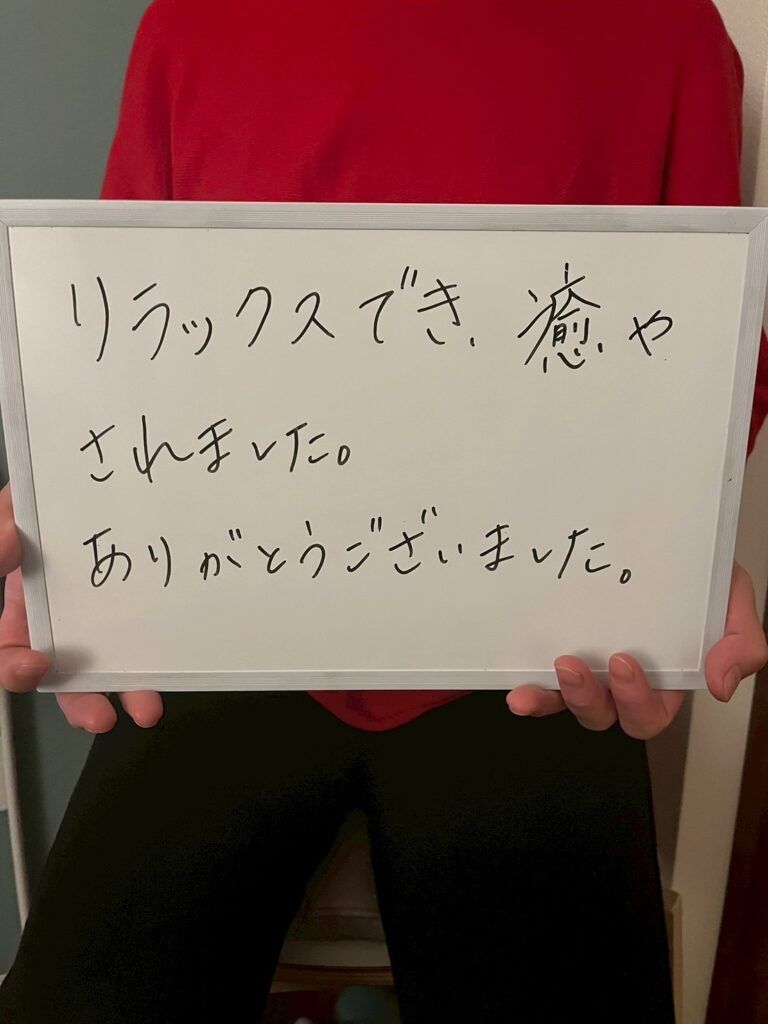 リラックスでき、癒や
されました。
ありがとうございました。